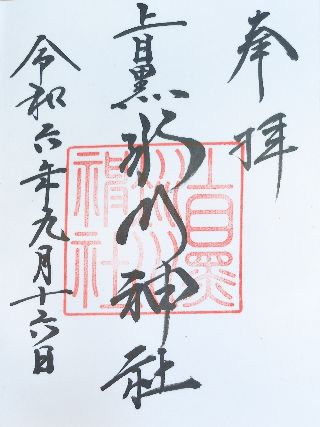 奉拝
上目黒氷川神社
令和六年九月十六日
上目黒
氷川
神社